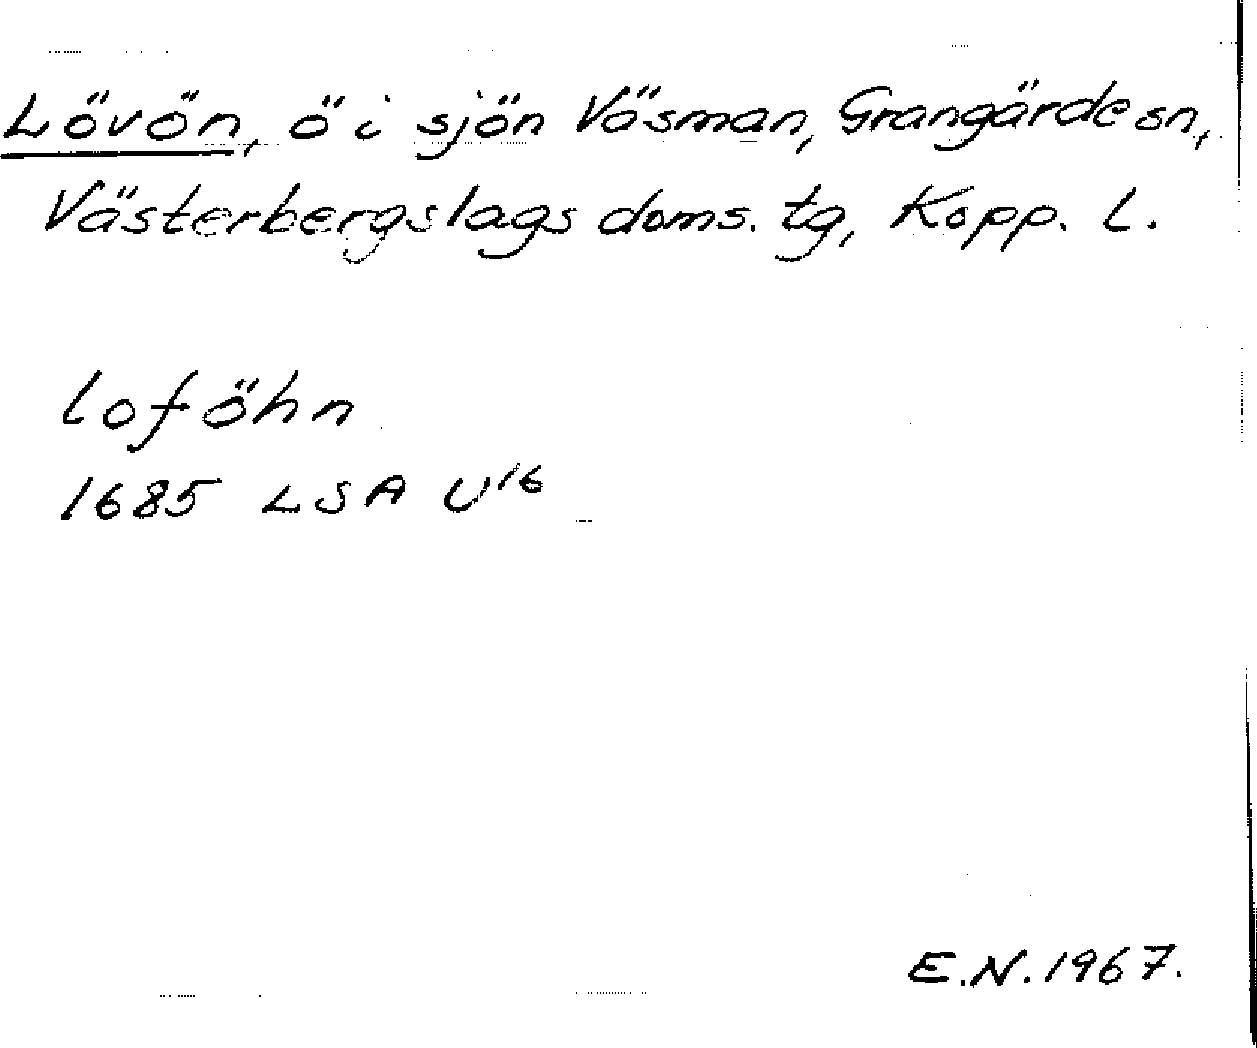 Lövön, ö i sjön Väsman, Grangärde sn,
Västerbergslags doms. tg, Kopp. l.
loföhn
1685 LSA U¹⁶
E.N. 1967.